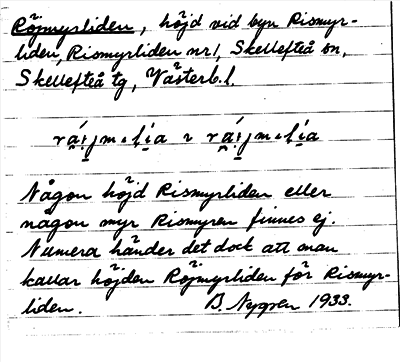 Röjmyrliden, höjd vid byn Rismyr-
liden, Rismyrliden nr 1, Skellefteå sn,
Skellefteå tg, Västerb. l.
Någon höjd Rismyrliden eller
någon myr Rismyren finnes ej.
Numera händer det dock att man
kallar höjden Röjmyrliden för Rismyr-
liden. B. Nygren 1933.